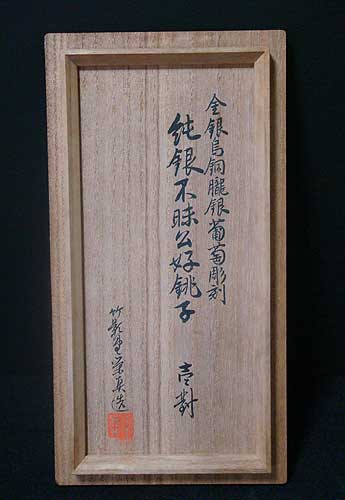 金銀烏銅朧銀葡萄彫刻
純銀不昧公好銚子 壱對
竹影堂榮真造